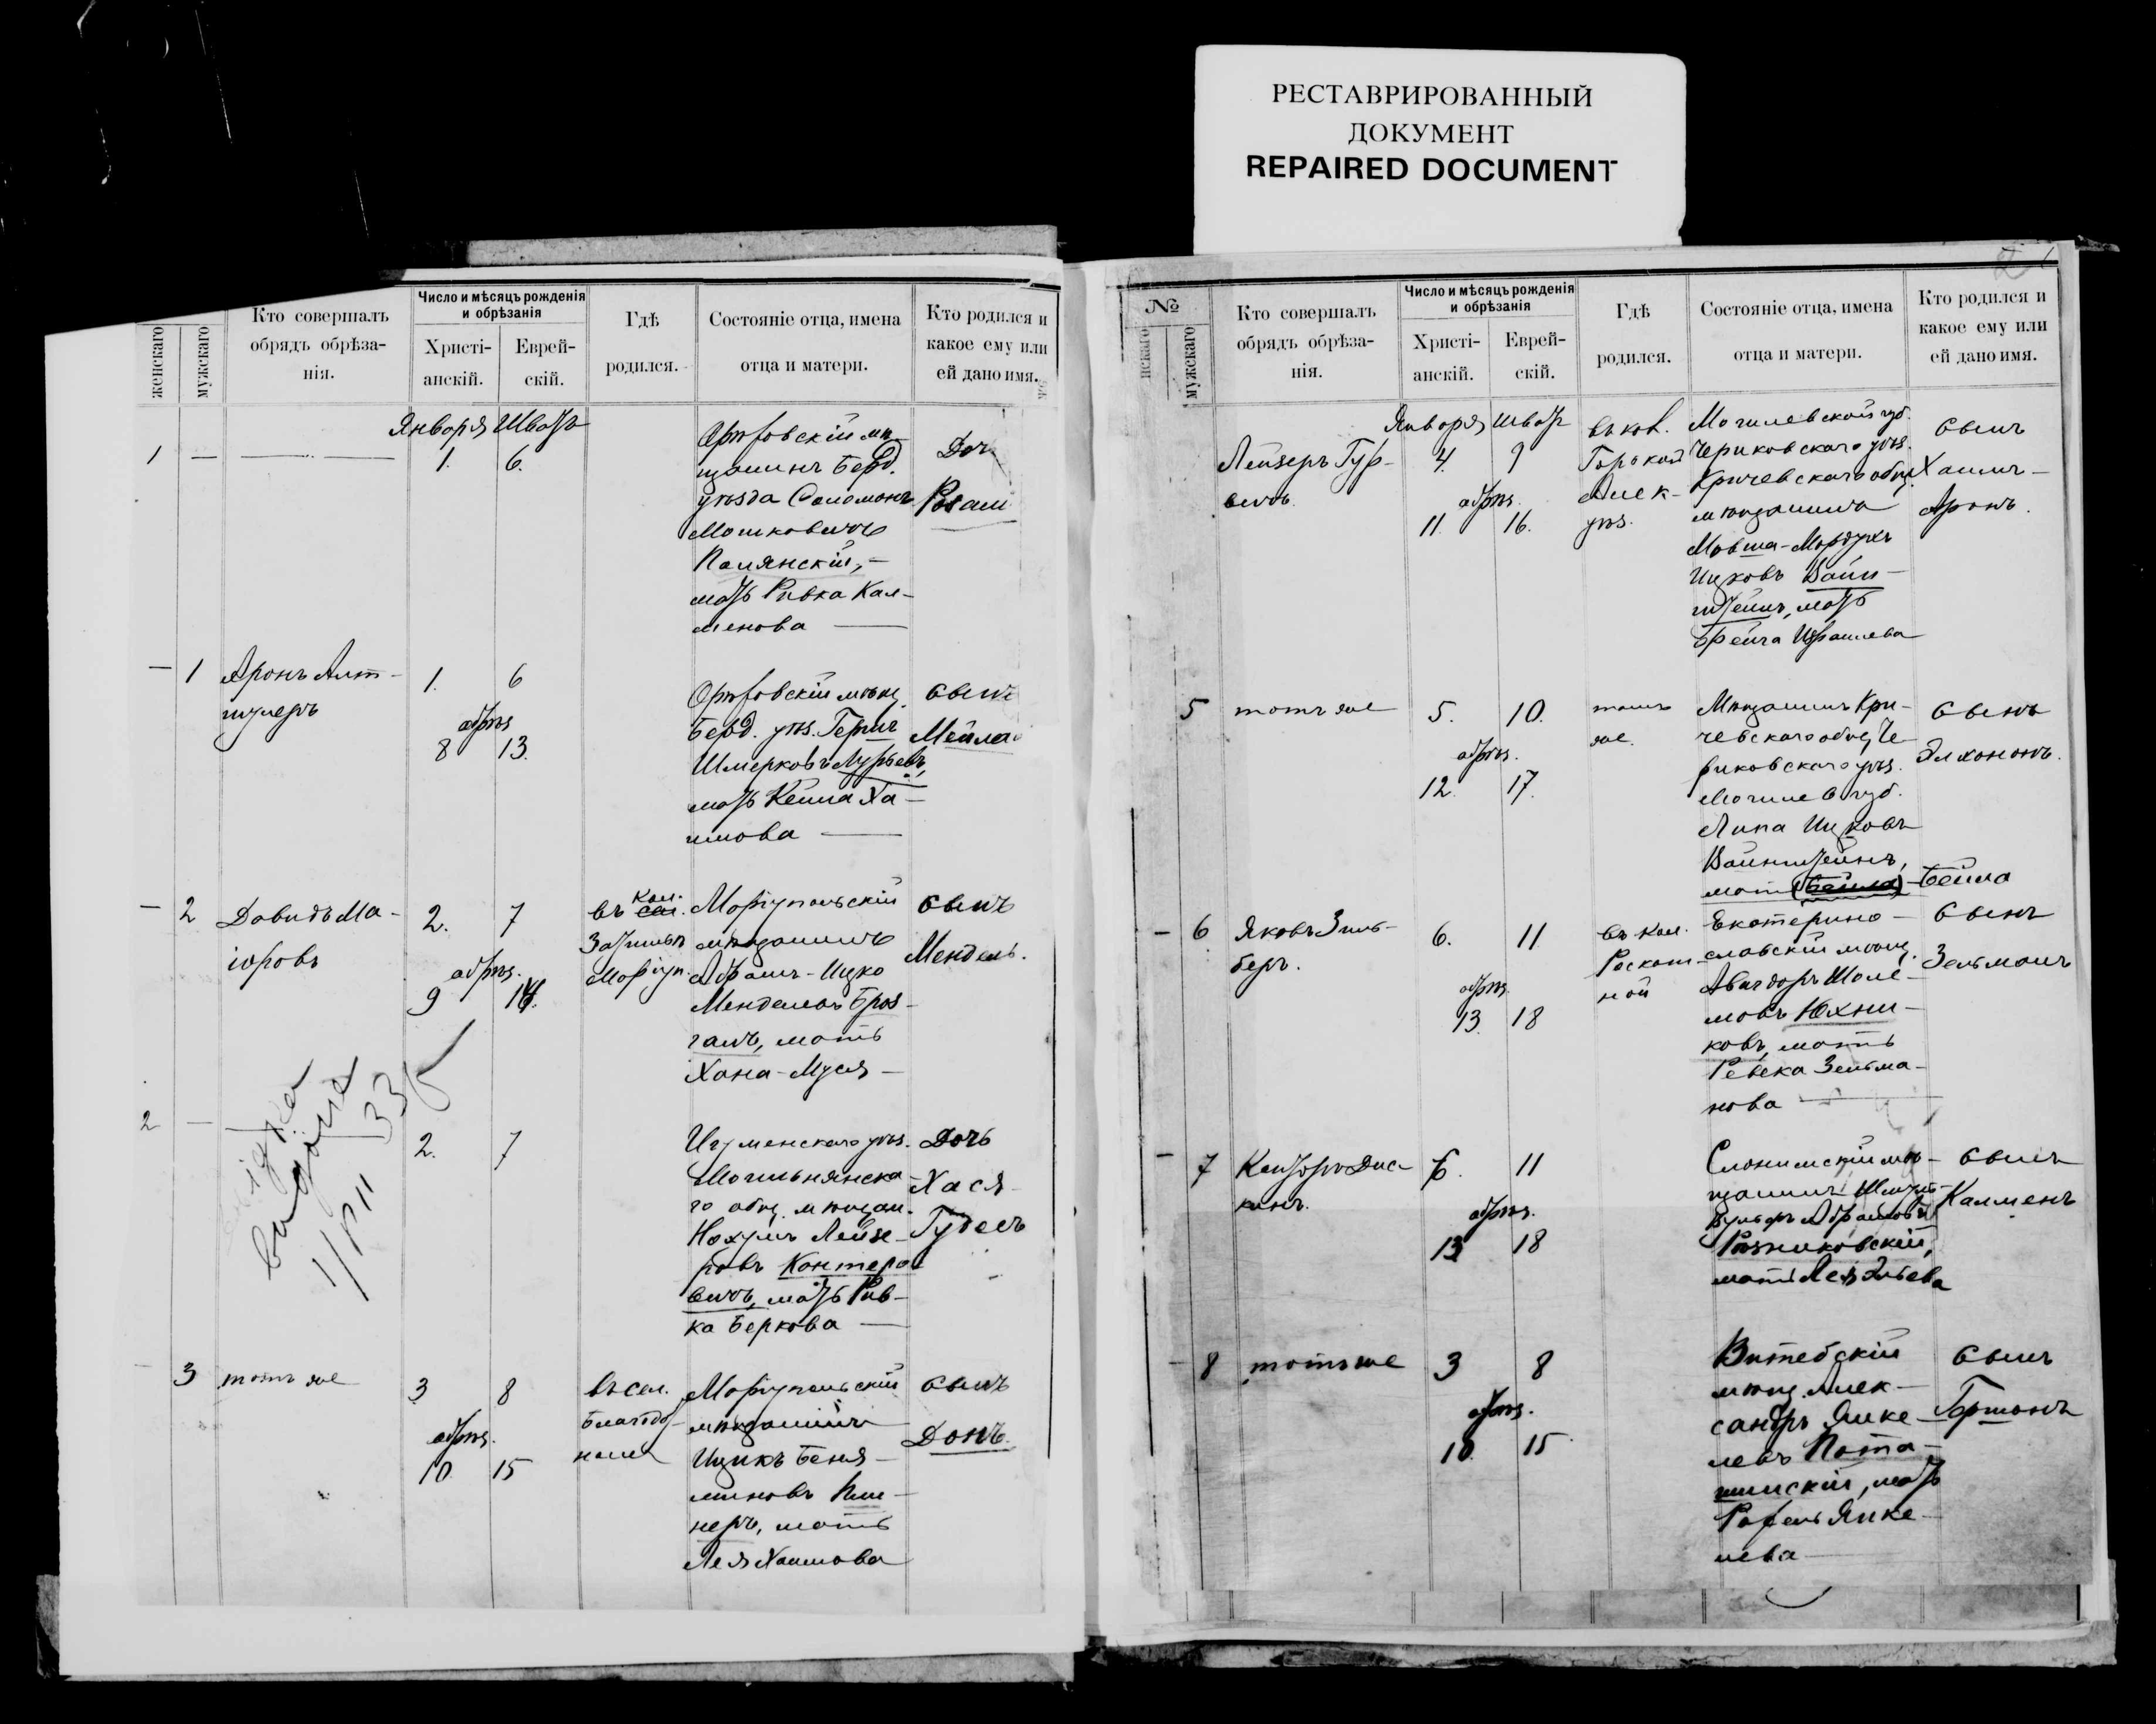 РЕСТАВРИРОВАННЫЙ
ДОКУМЕНТ
REPAIRED DOCUMENT
женскаго
мужскаго
Кто совершалъ
обрядъ обрѣза-
нія.
Число и мѣсяцъ рожденія
и обрѣзанія
Христі-
анскій.
Еврей-
скій.
Гдѣ
родился.
Состояніе отца, имена
отца и матери.
Кто родился и
какое ему или
ей дано имя.
Января Шватъ
1 — — 1. 6.
щанинъ Берд.
уѣзда Соломонъ
Мошковичъ
Полянскій, —
мать Ривка Кал-
менова —
— 1 Аронъ Алт-
шулеръ
1. 6
обрѣз.
8 13.
Берд. уѣз. Гершъ
Шмерковъ Лурьевъ,
мать Кейла Ха-
имова —
сынъ
— 2 Давидъ Ма-
іоровъ
2. 7
обрѣз.
9 14.
въ кол.
Маріуп.
Маріупольскій
мѣщанинъ
Абрамъ-Ицко
Менделевъ Броз-
голь, мать
Хана-Муся —
сынъ
Мендель.
2 —
2. 7
Игуменскаго уѣз.
Могильнянска-
го общ. мѣщан.
Нохумъ Лейзе-
ровъ Контеро-
вичъ, мать Рив-
ка Беркова —
Дочь
Хася-
Гудесъ
3 тотъ же
3 8
обрѣз.
10. 15
въ сел.
Маріупольскій
мѣщанинъ
Ицикъ Беня-
миновъ
неръ, мать
Лея Хаимова
сынъ
Донъ.
№
мужскаго
Кто совершалъ
обрядъ обрѣза-
нія.
Число и мѣсяцъ рожденія
и обрѣзанія
Христі-
анскій.
Еврей-
скій.
Гдѣ
родился.
Состояніе отца, имена
отца и матери.
Кто родился и
какое ему или
ей дано имя.
Января Шватъ
Лейзеръ Гур-
вичъ.
4. 9
обрѣз.
11. 16.
въ кол.
Горькой
Алек-
уѣз.
Могилевской губ.
Чериковскаго уѣз.
Кричевскаго общ.
мѣщанина
Мовша-Мордухъ
Ицковъ Вайн-
штейнъ, мать
Фейга Израилева
сынъ
Хаимъ-
Аронъ.
5 тотъ же
5. 10.
обрѣз.
12. 17.
тамъ
же.
Мѣщанинъ Кри-
чевскаго общ. Че-
риковскаго уѣз.
Могилев губ.
Липа Ицковъ
Вайнштейнъ,
мать Бейла
сынъ
Элхононъ.
— 6 Яковъ Зиль-
беръ.
6. 11
обрѣз.
13. 18
въ кол.
Роскош-
ной
Екатерино-
славскій мѣщ.
Авигдоръ Шоле-
мовъ Юхни-
ковъ, мать
Ревека Зельма-
нова —
сынъ
Зельманъ
— 7 Канторъ Дис-
кинъ.
6. 11
обрѣз.
13 18
Слонимскій мѣ-
щанинъ Шмуль-
Вульфъ Абрамовъ
Рѣзниковскій,
мать Лея Эльева
сынъ
Калменъ
— 8 тотъ же
3 8
обрѣз.
10. 15
Витебскій
мѣщ. Алек-
сандръ Янке-
левъ Пота-
шинскій, мать
Рахель Янке-
лева
сынъ